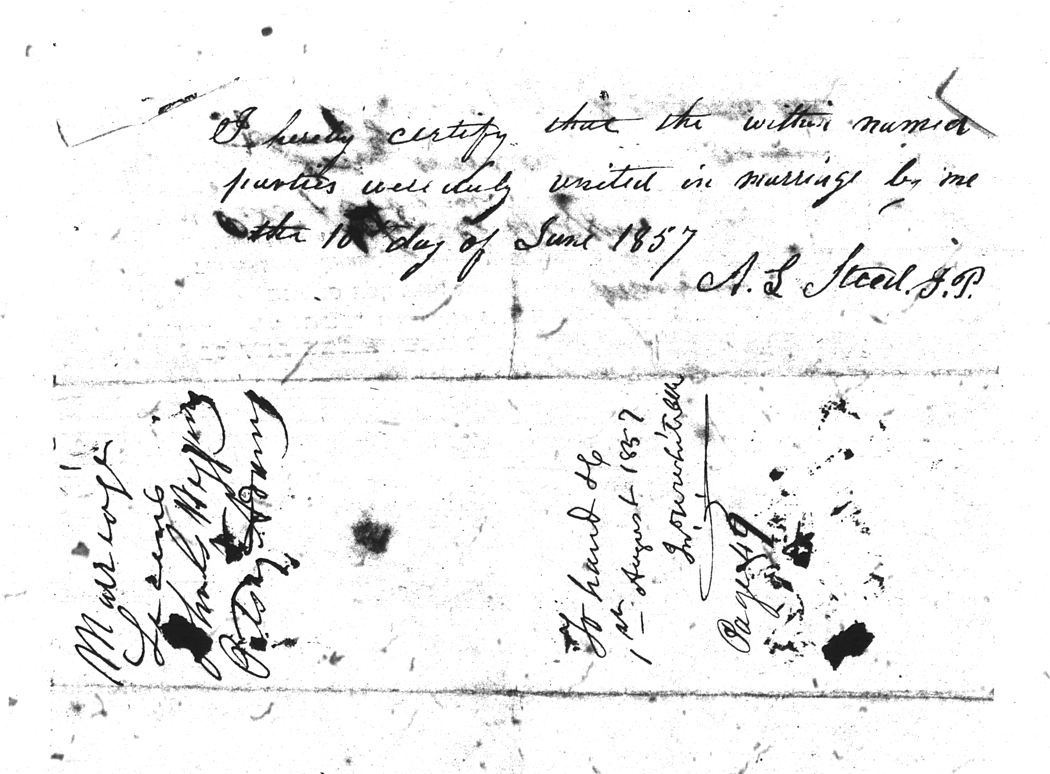 I hereby certify that the within named
parties were duly united in marriage by me
the 10th day of June 1857
A. L. Steed. J.P.
Marriage
License
Charles
Betsy
To hand &c
1st August 1857
Page 49